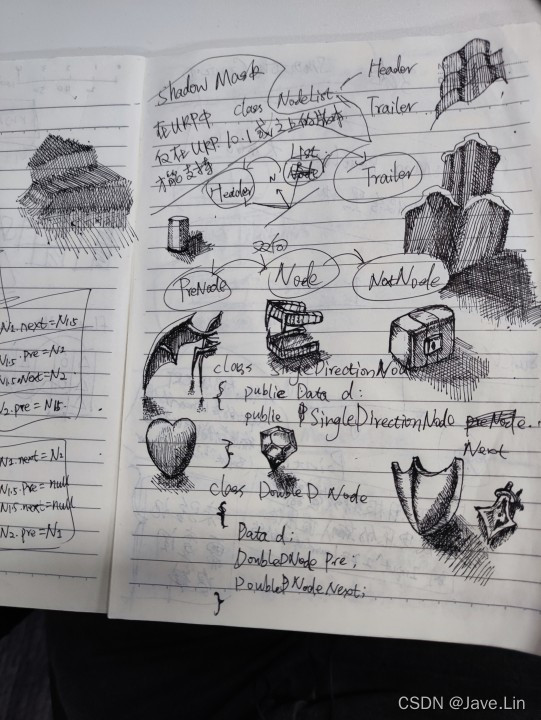 N1.next=N1.5
N1.5.pre=N1
N1.5.Next=N2
N2.pre=N1.5
N1.next=N2
N1.5.pre=null
N1.5.next=null
N2.pre=N1
Shadow Mask
在URP中
仅在URP 10.1或以上的版本
才能支持
class NodeList
Header
Trailer
List
Node
Header
N
Trailer
双向
PreNode
Node
NextNode
class SingleDirectionNode
{
public Data d;
public SingleDirectionNode
Next
}
class DoubleDNode
{
Data d;
DoubleDNode Pre;
DoubleDNode Next;
}
CSDN @Jave.Lin